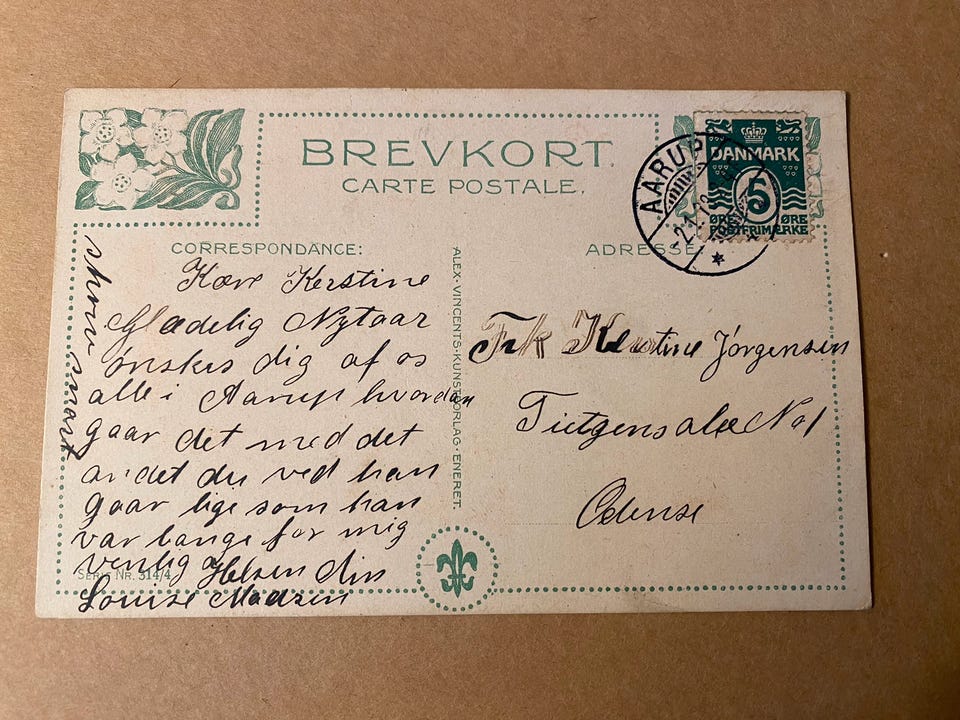 BREVKORT.
CARTE POSTALE.
AARUP
2.1.13
DANMARK
5
ØRE ØRE
POSTFRIMÆRKE
CORRESPONDANCE:
Kære Kerstine
Glædelig Nytaar
ønskes dig af os
alle i Aarup hvordan
gaar det med det
andet du ved han
gaar lige som han
var bange for mig
venlig Helsen din
Louise Madsen
skriv snart
SERIE NR. 314/4
ALEX. VINCENTS · KUNSTFORLAG · ENERET.
ADRESSE
Frk Kerstine Jørgensen
Tietgens alle No 1
Odense